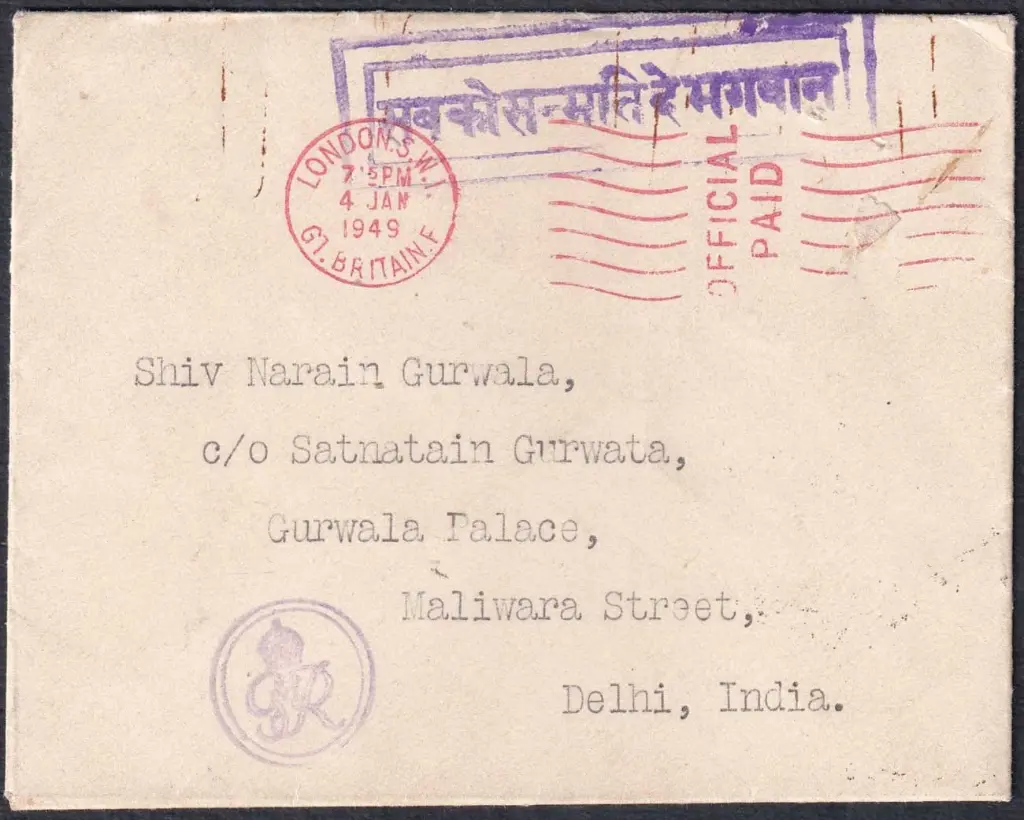 सबको सन्मति दे भगवान
LONDON.S.W.1
7 15PM
4 JAN
1949
GT. BRITAIN.F
OFFICIAL
PAID
Shiv Narain Gurwala,
c/o Satnatain Gurwata,
Gurwala Palace,
Maliwara Street,
Delhi, India.
GR